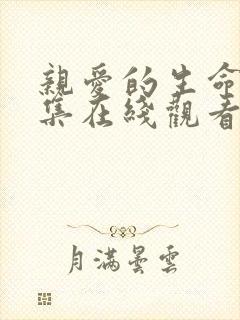 親愛的生命
集在綫觀看
月滿曇雲